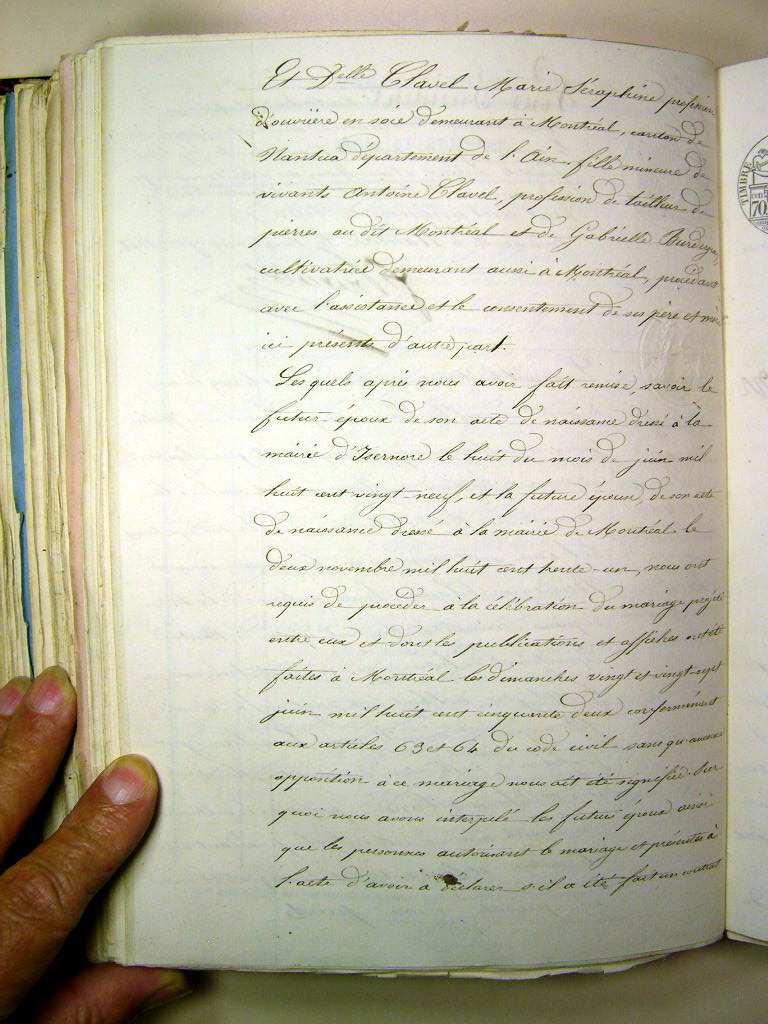 Et Delle Clavel Marie Séraphine profession
d'ouvrière en soie demeurant à Montréal, canton de
Nantua département de l'Ain fille mineure de
vivants Antoine Clavel, profession de tailleur de
pierres au dit Montréal et de Gabrielle
cultivatrice demeurant aussi à Montréal, procédant
avec l'assistance et le consentement de ses père et mère
ici présents d'autre part.
Les quels après nous avoir fait remise, savoir le
futur époux de son acte de naissance dressé à la
mairie d'Isernore le huit du mois de juin mil
huit cent vingt-neuf, et la future épouse, de son acte
de naissance dressé à la mairie de Montréal le
deux novembre mil huit cent trente-un, nous ont
requis de procéder à la célébration du mariage projeté
entre eux et dont les publications et affiches ont été
faites à Montréal les dimanches vingt et vingt-sept
juin mil huit cent cinquante deux conformément
aux articles 63 et 64 du code civil sans qu'aucune
opposition à ce mariage nous ait été signifiée. Sur
quoi nous avons interpelé les futurs époux ainsi
que les personnes autorisant le mariage et présentes à
l'acte d'avoir à déclarer s'il a été fait un contrat
TIMBRE
70